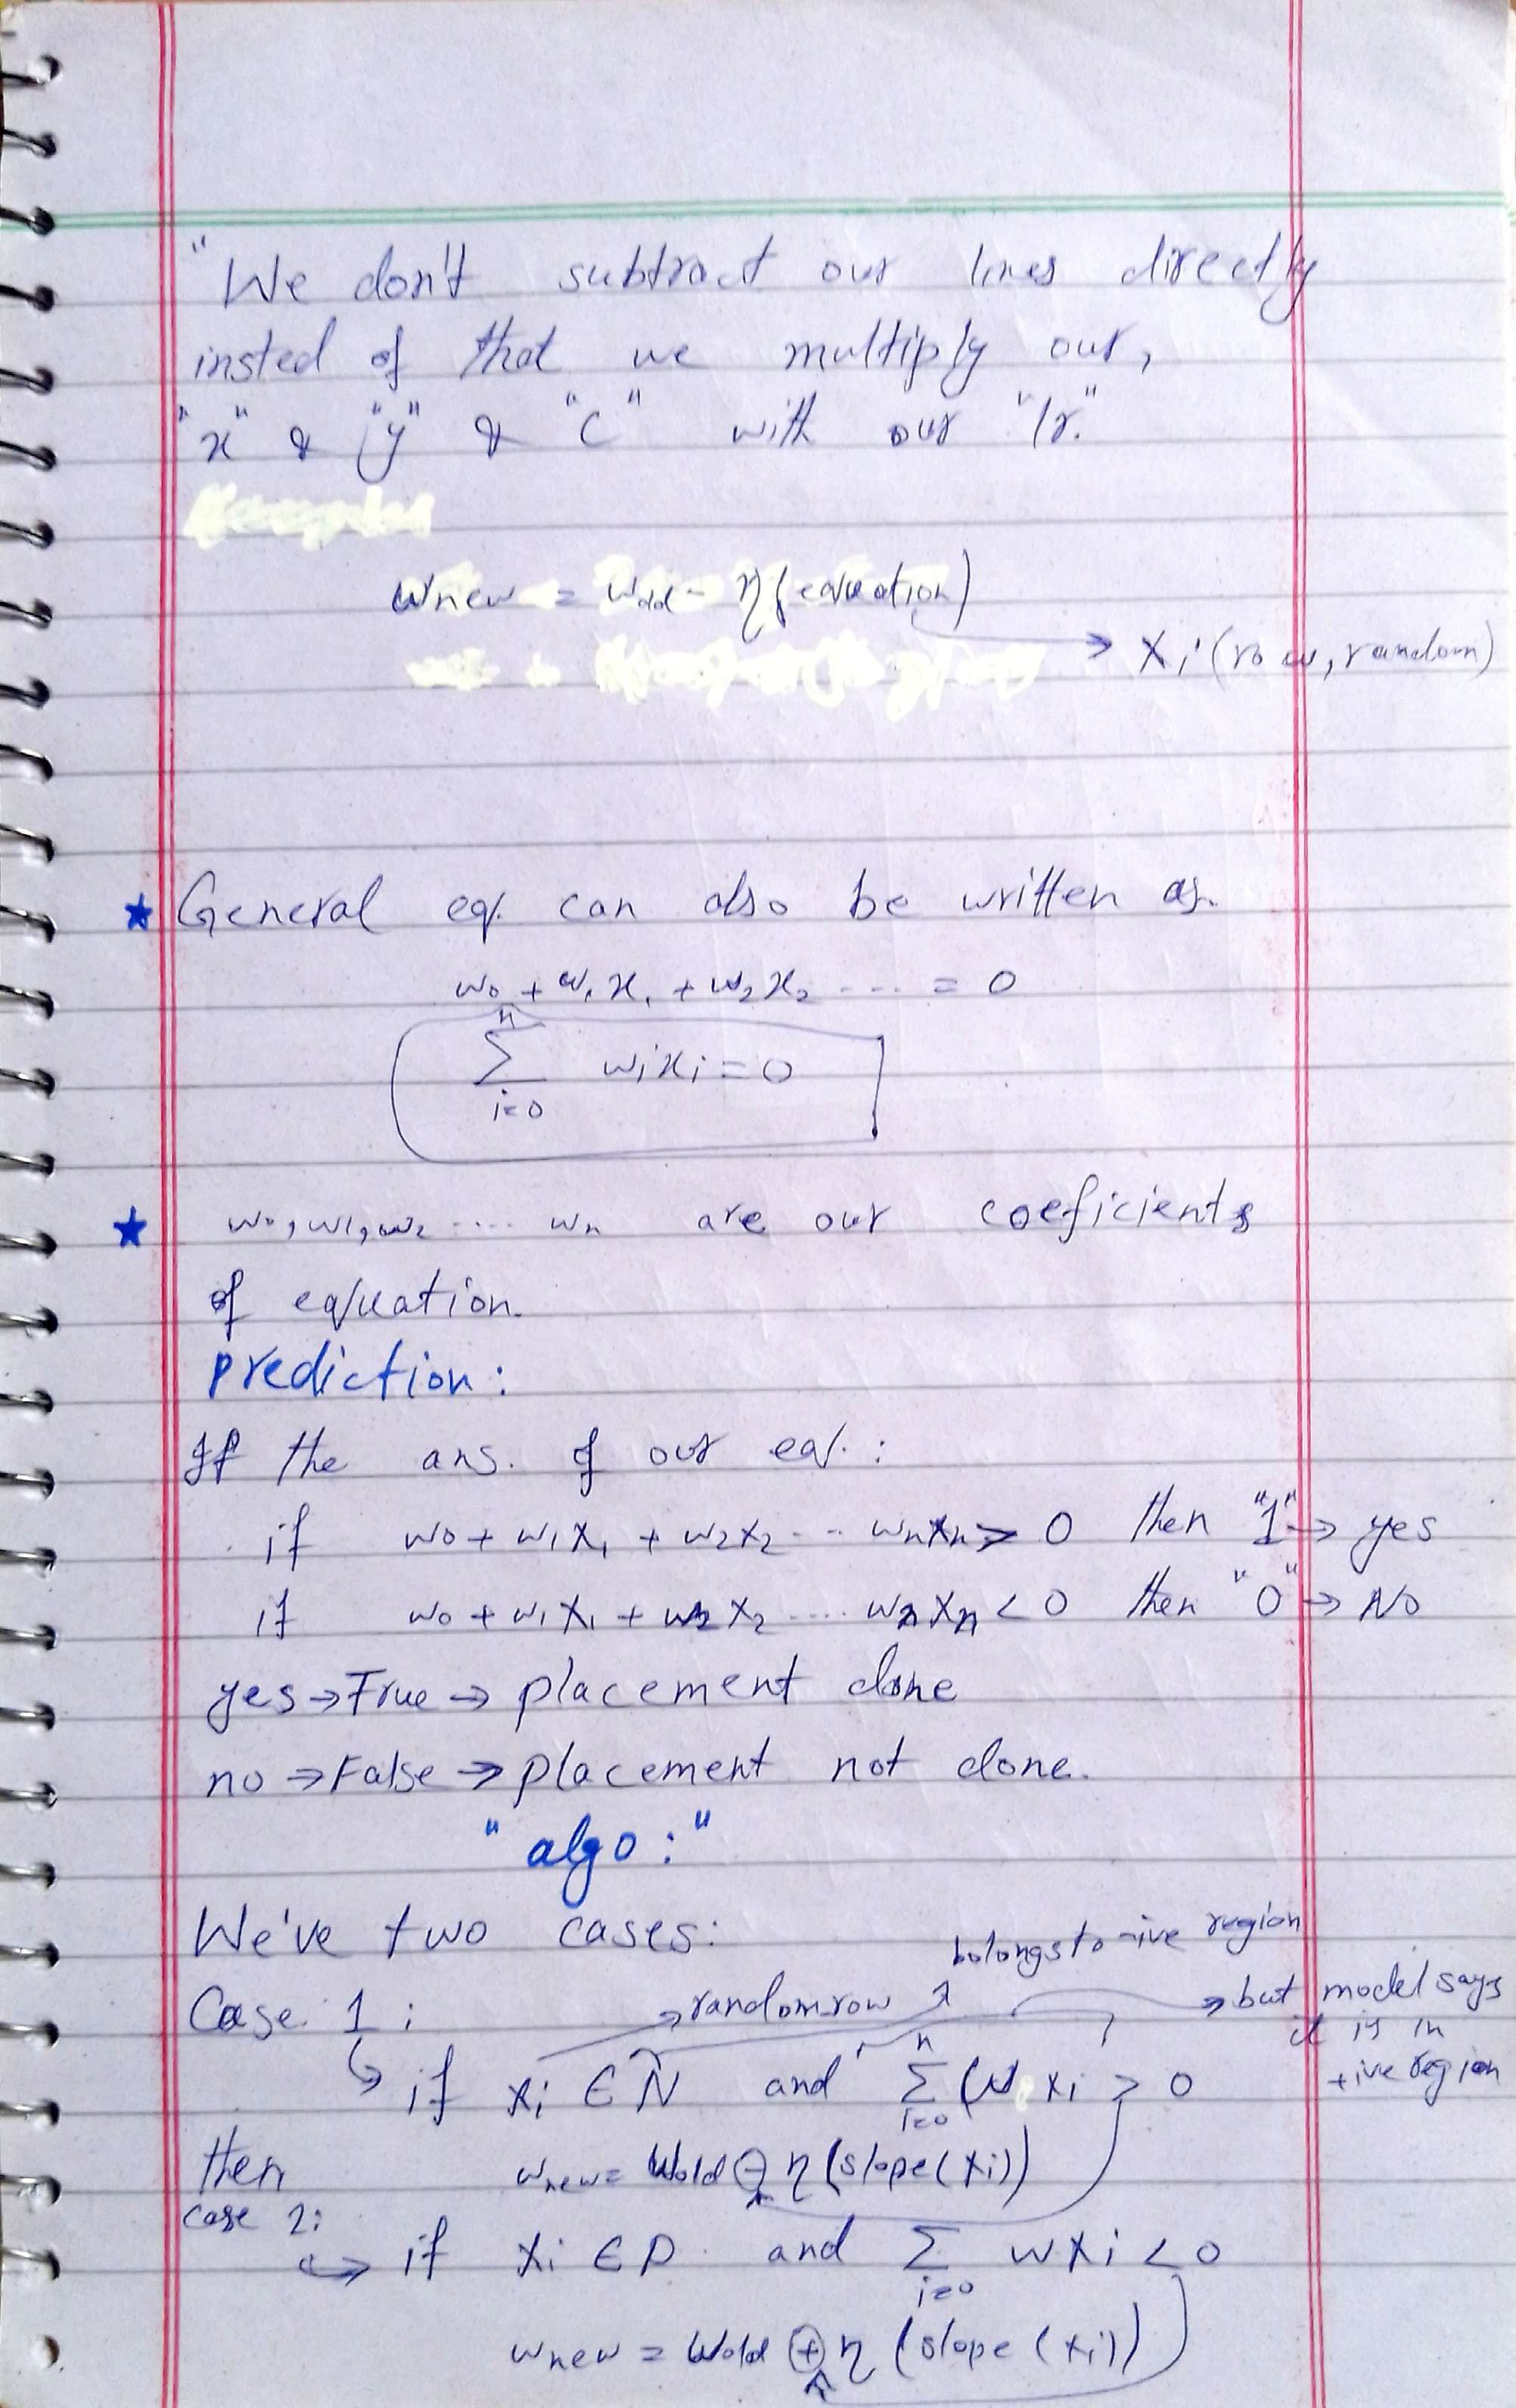 "We don't subtract our lines directly
insted of that we multiply our,
"x" & "y" & "c" with our "lr."
wnew = wold - η(equation)
→ Xi (row, random)
★ General eq. can also be written as.
w0 + w1x1 + w2x2 .... = 0
n
∑ wixi = 0
i=0
★ w0, w1, w2 .... wn are our coeficients
of equation.
Prediction:
If the ans. of our eq. :
if w0 + w1x1 + w2x2 .... wnxn > 0 then "1" → yes
if w0 + w1x1 + w2x2 .... wnxn < 0 then "0" → No
yes → True → placement done
no → False → placement not done.
"algo:"
We've two cases:
belongs to -ive region
Case 1 : → random row → but model says
it is in
+ive region
n
if xi ∈ N and ∑ (w xi > 0
i=0
then wnew = Wold ⊖ η (slope(xi))
case 2:
if xi ∈ P and ∑ wxi < 0
i=0
wnew = Wold ⊕ η (slope (xi))